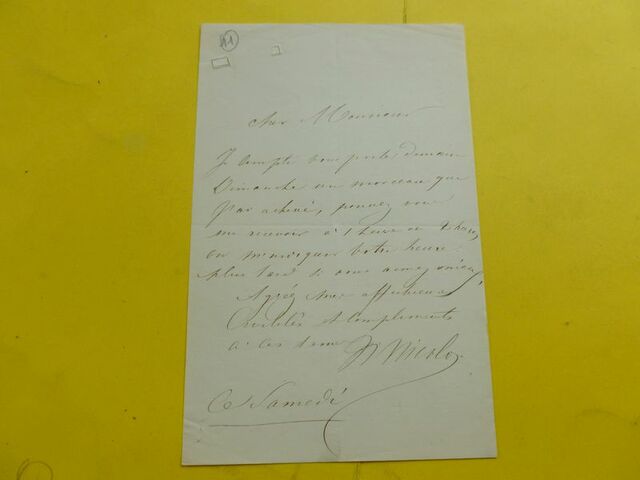 11
cher Monsieur
Je compte vous porter demain
Dimanche un morceau que
j'ai achevé, pouvez vous
me recevoir à 1 heure ou 2 heures
ou m'indiquer votre heure
plus tard si vous aimez mieux
Agréez mes affectueuses
Civilités et compliments
à ces dames
Ce Samedi